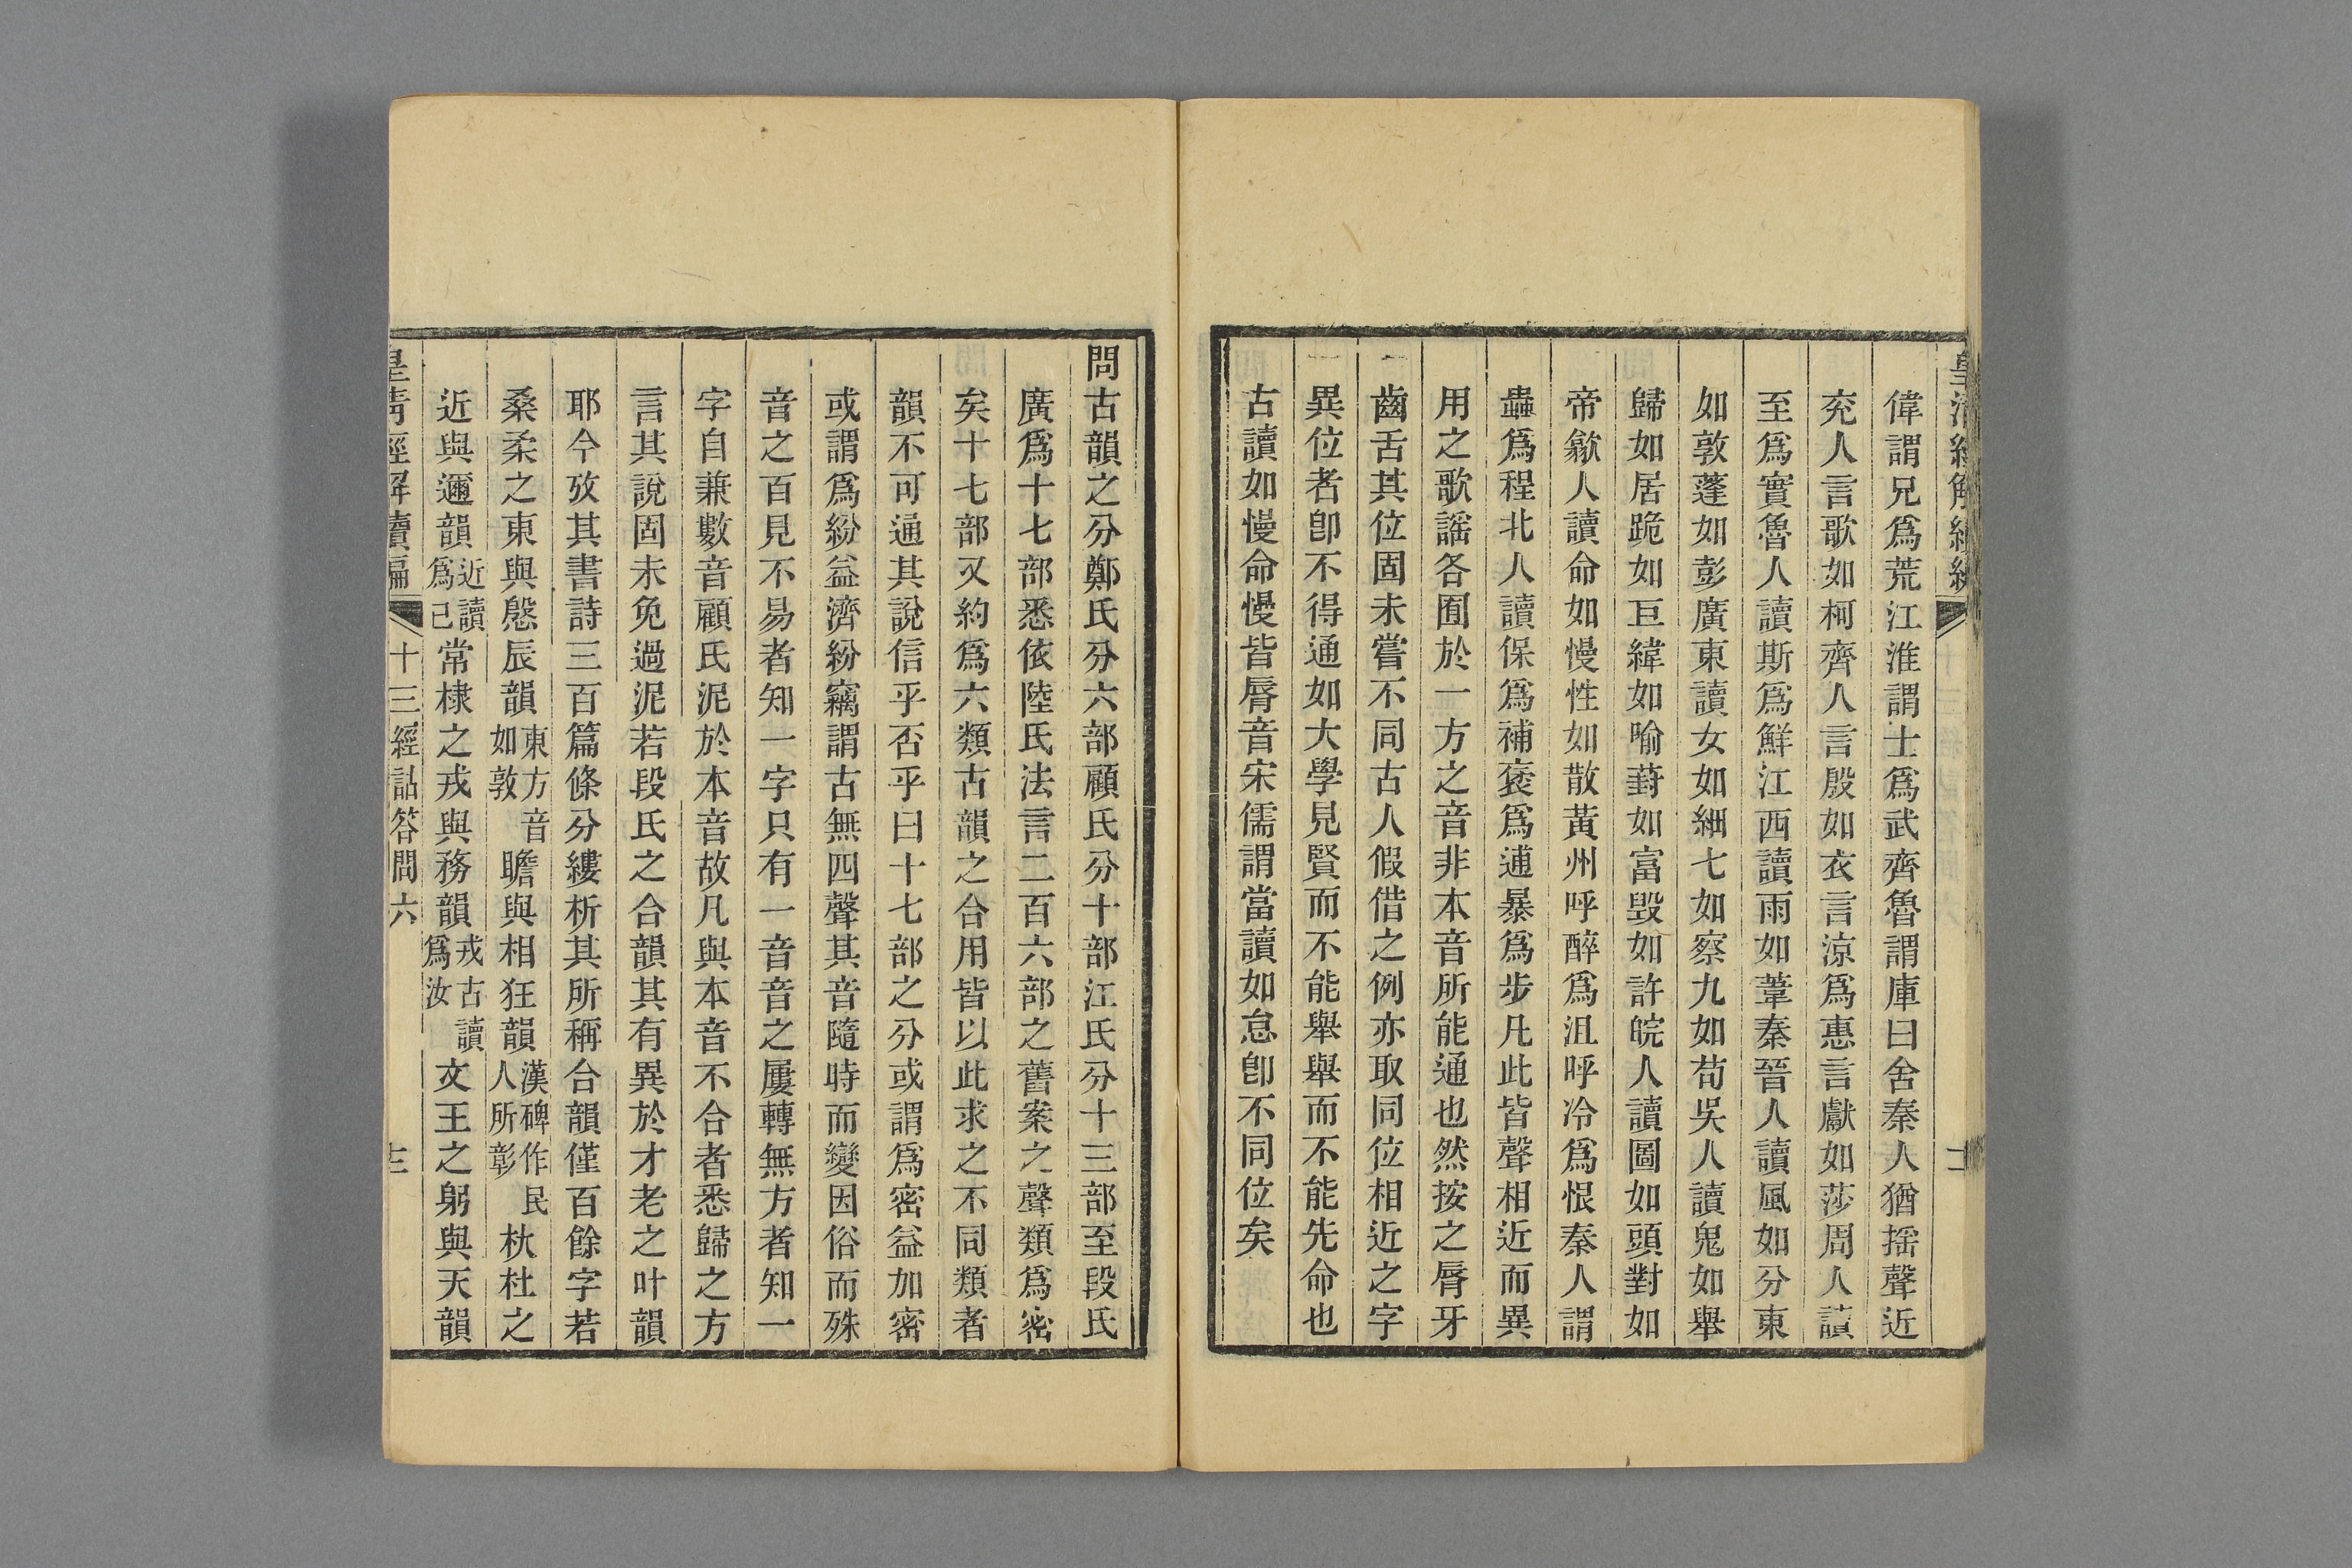 偉謂兄爲荒江淮謂士爲武齊魯謂庫曰舍秦人猶搖聲近
兖人言歌如柯齊人言殷如衣言涼爲惠言獻如莎周人讀
至爲實魯人讀斯爲鮮江西讀雨如葦秦晉人讀風如分東
如敦蓬如彭廣東讀女如細七如察九如苟吳人讀鬼如舉
歸如居跪如巨緯如喻葑如富毀如許皖人讀圖如頭對如
帝歙人讀命如慢性如散黃州呼醉爲沮呼冷爲恨秦人謂
蟲爲程北人讀保爲補褒爲逋暴爲步凡此皆聲相近而異
用之歌謠各囿於一方之音非本音所能通也然按之脣牙
齒舌其位固未嘗不同古人假借之例亦取同位相近之字
異位者卽不得通如大學見賢而不能舉舉而不能先命也
古讀如慢命慢皆脣音宋儒謂當讀如怠卽不同位矣
問古韻之分鄭氏分六部顧氏分十部江氏分十三部至段氏
廣爲十七部悉依陸氏法言二百六部之舊案之聲類爲密
矣十七部又約爲六類古韻之合用皆以此求之不同類者
韻不可通其說信乎否乎曰十七部之分或謂爲密益加密
或謂爲紛益濟紛竊謂古無四聲其音隨時而變因俗而殊
音之百見不易者知一字只有一音音之屢轉無方者知一
字自兼數音顧氏泥於本音故凡與本音不合者悉歸之方
言其說固未免過泥若段氏之合韻其有異於才老之叶韻
耶今攷其書詩三百篇條分縷析其所稱合韻僅百餘字若
桑柔之東與慇辰韻東方音如敦瞻與相狂韻漢碑作民人所彰杕杜之
近與邇韻近讀爲己常棣之戎與務韻戎古讀爲汝文王之躬與天韻
皇清經解續編 十三經詁答問六 十三